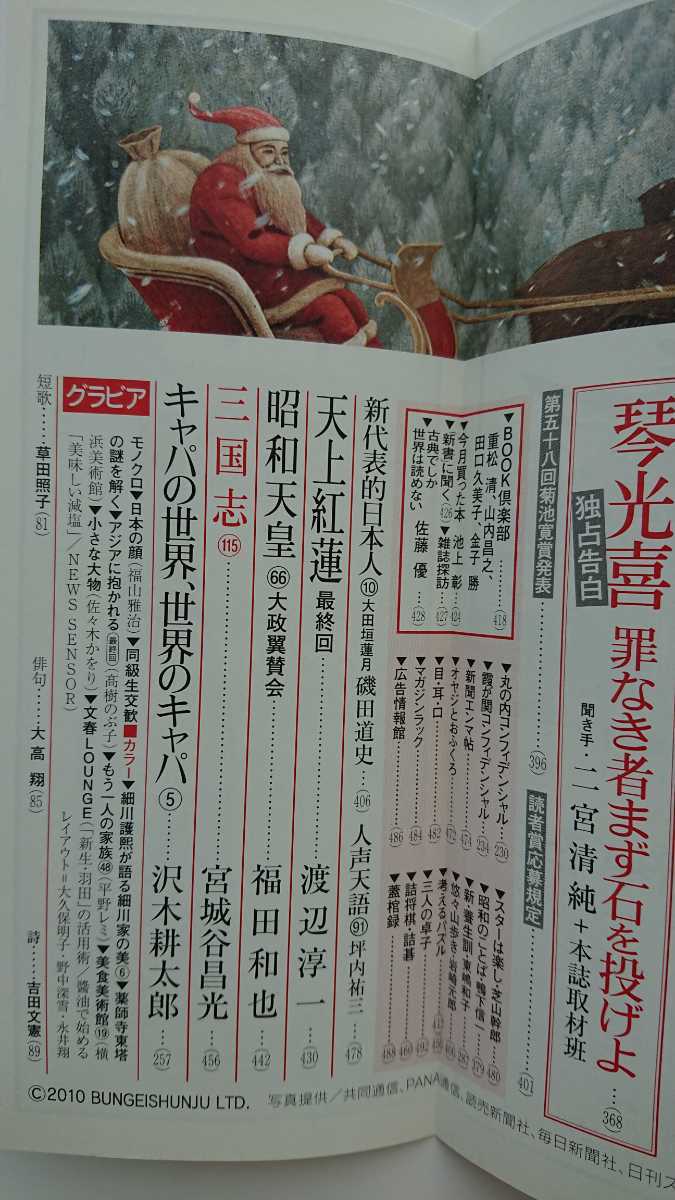 琴光喜 罪なき者まず石を投げよ …(368)
独占告白
聞き手・二宮清純+本誌取材班
第五十八回菊池寛賞発表………(396)
読者賞応募規定………(401)
▼BOOK倶楽部………(418)
重松 清、山内昌之、
田口久美子、金子 勝
▼今月買った本 池上 彰…(424)
▼新書に聞く(426) ▼雑誌探訪…(427)
▼古典でしか
世界は読めない 佐藤 優…(428)
▼丸の内コンフィデンシャル…(230)
▼霞が関コンフィデンシャル…(234)
▼新聞エンマ帖………(474)
▼オヤジとおふくろ………(472)
▼目・耳・口………(482)
▼マガジンラック………(484)
▼広告情報館………(486)
▼スターは楽し 芝山幹郎…(480)
▼昭和のことば 鴨下信一…(379)
▼新・養生訓 東嶋和子…(282)
▼悠々山歩き 岩崎元郎
▼考えるパズル
▼三人の卓子…(492)
▼詰将棋・詰碁…(460)
▼蓋棺録………(488)
新代表的日本人⑩ 大田垣蓮月 磯田道史…(406)
人声天語(91) 坪内祐三…(478)
天上紅蓮 最終回………渡辺淳一…(430)
昭和天皇(66) 大政翼賛会………福田和也…(442)
三国志(115)………宮城谷昌光…(456)
キャパの世界、世界のキャパ⑤………沢木耕太郎…(257)
グラビア
モノクロ▼日本の顔(福山雅治)▼同級生交歓■カラー▼細川護熙が語る細川家の美⑥▼薬師寺東塔
の謎を解く▼アジアに抱かれる(最終回)(高樹のぶ子)▼もう一人の家族(48)(平野レミ)▼美食美術館⑲(横
浜美術館)▼小さな大物(佐々木かをり)▼文春LOUNGE(「新生・羽田」の活用術/醬油で始める
「美味しい減塩」/NEWS SENSOR)
レイアウト=大久保明子・野中深雪・永井翔
短歌……草田照子(81)
俳句……大高 翔(85)
詩……吉田文憲(89)
©2010 BUNGEISHUNJU LTD.
写真提供/共同通信、PANA通信、読売新聞社、毎日新聞社、日刊ス